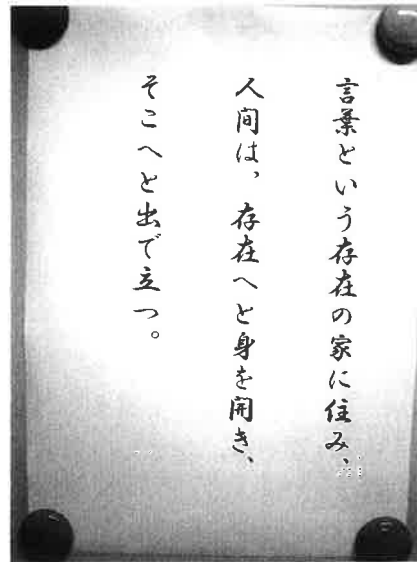 言葉という存在の家に住み、
人間は，存在へと身を開き、
そこへと出で立つ。